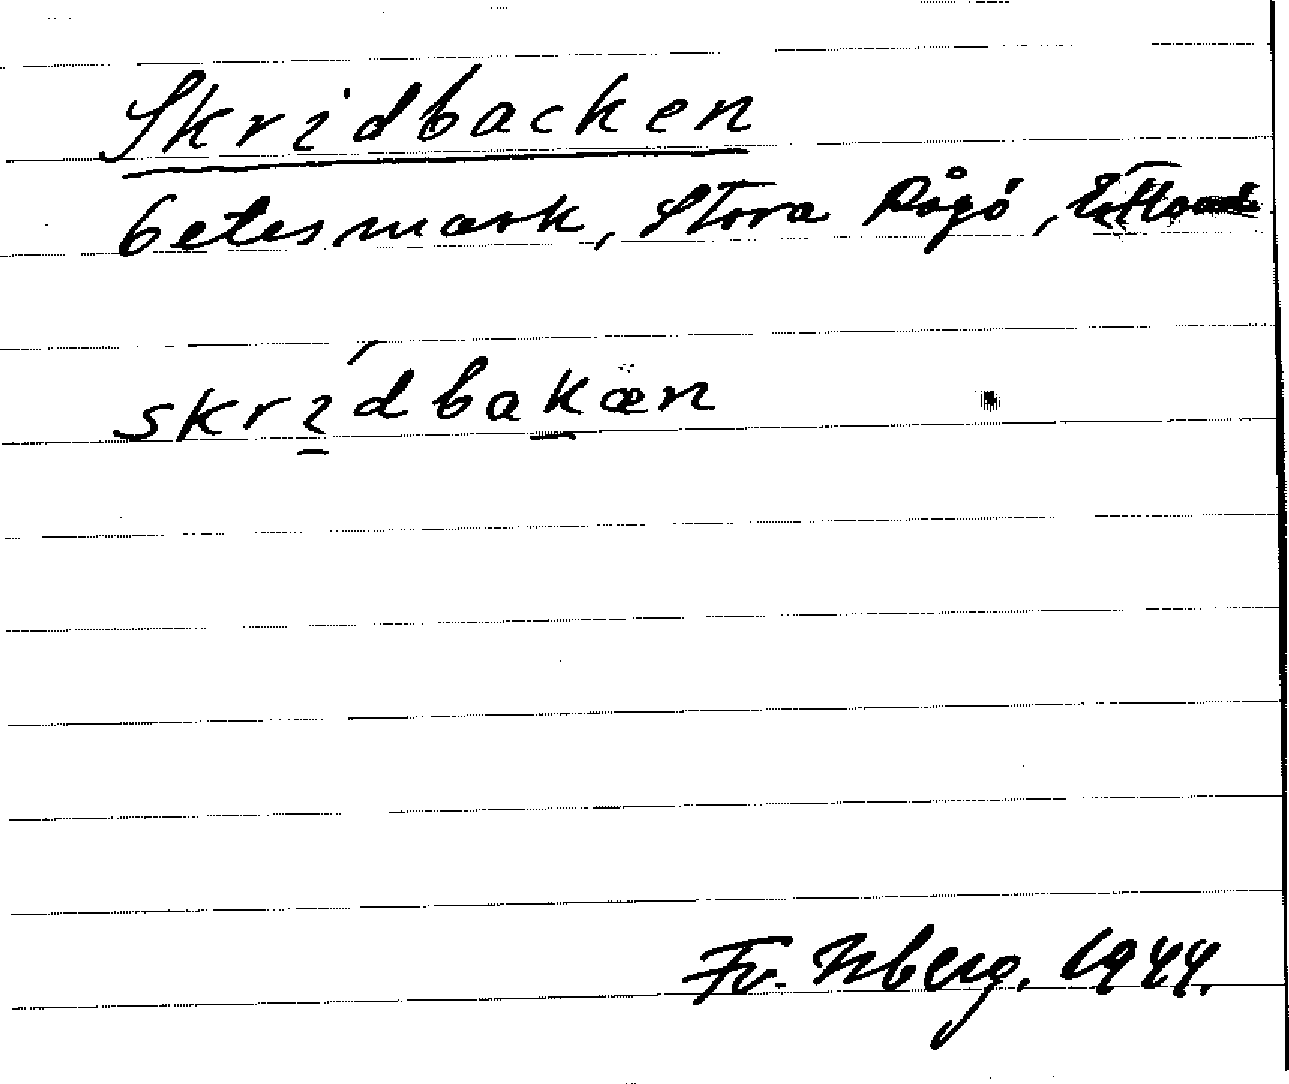 Skridbacken
betesmark, Stora Rågö, Estland
skrídbakæn
Fr. Isberg. 1944.